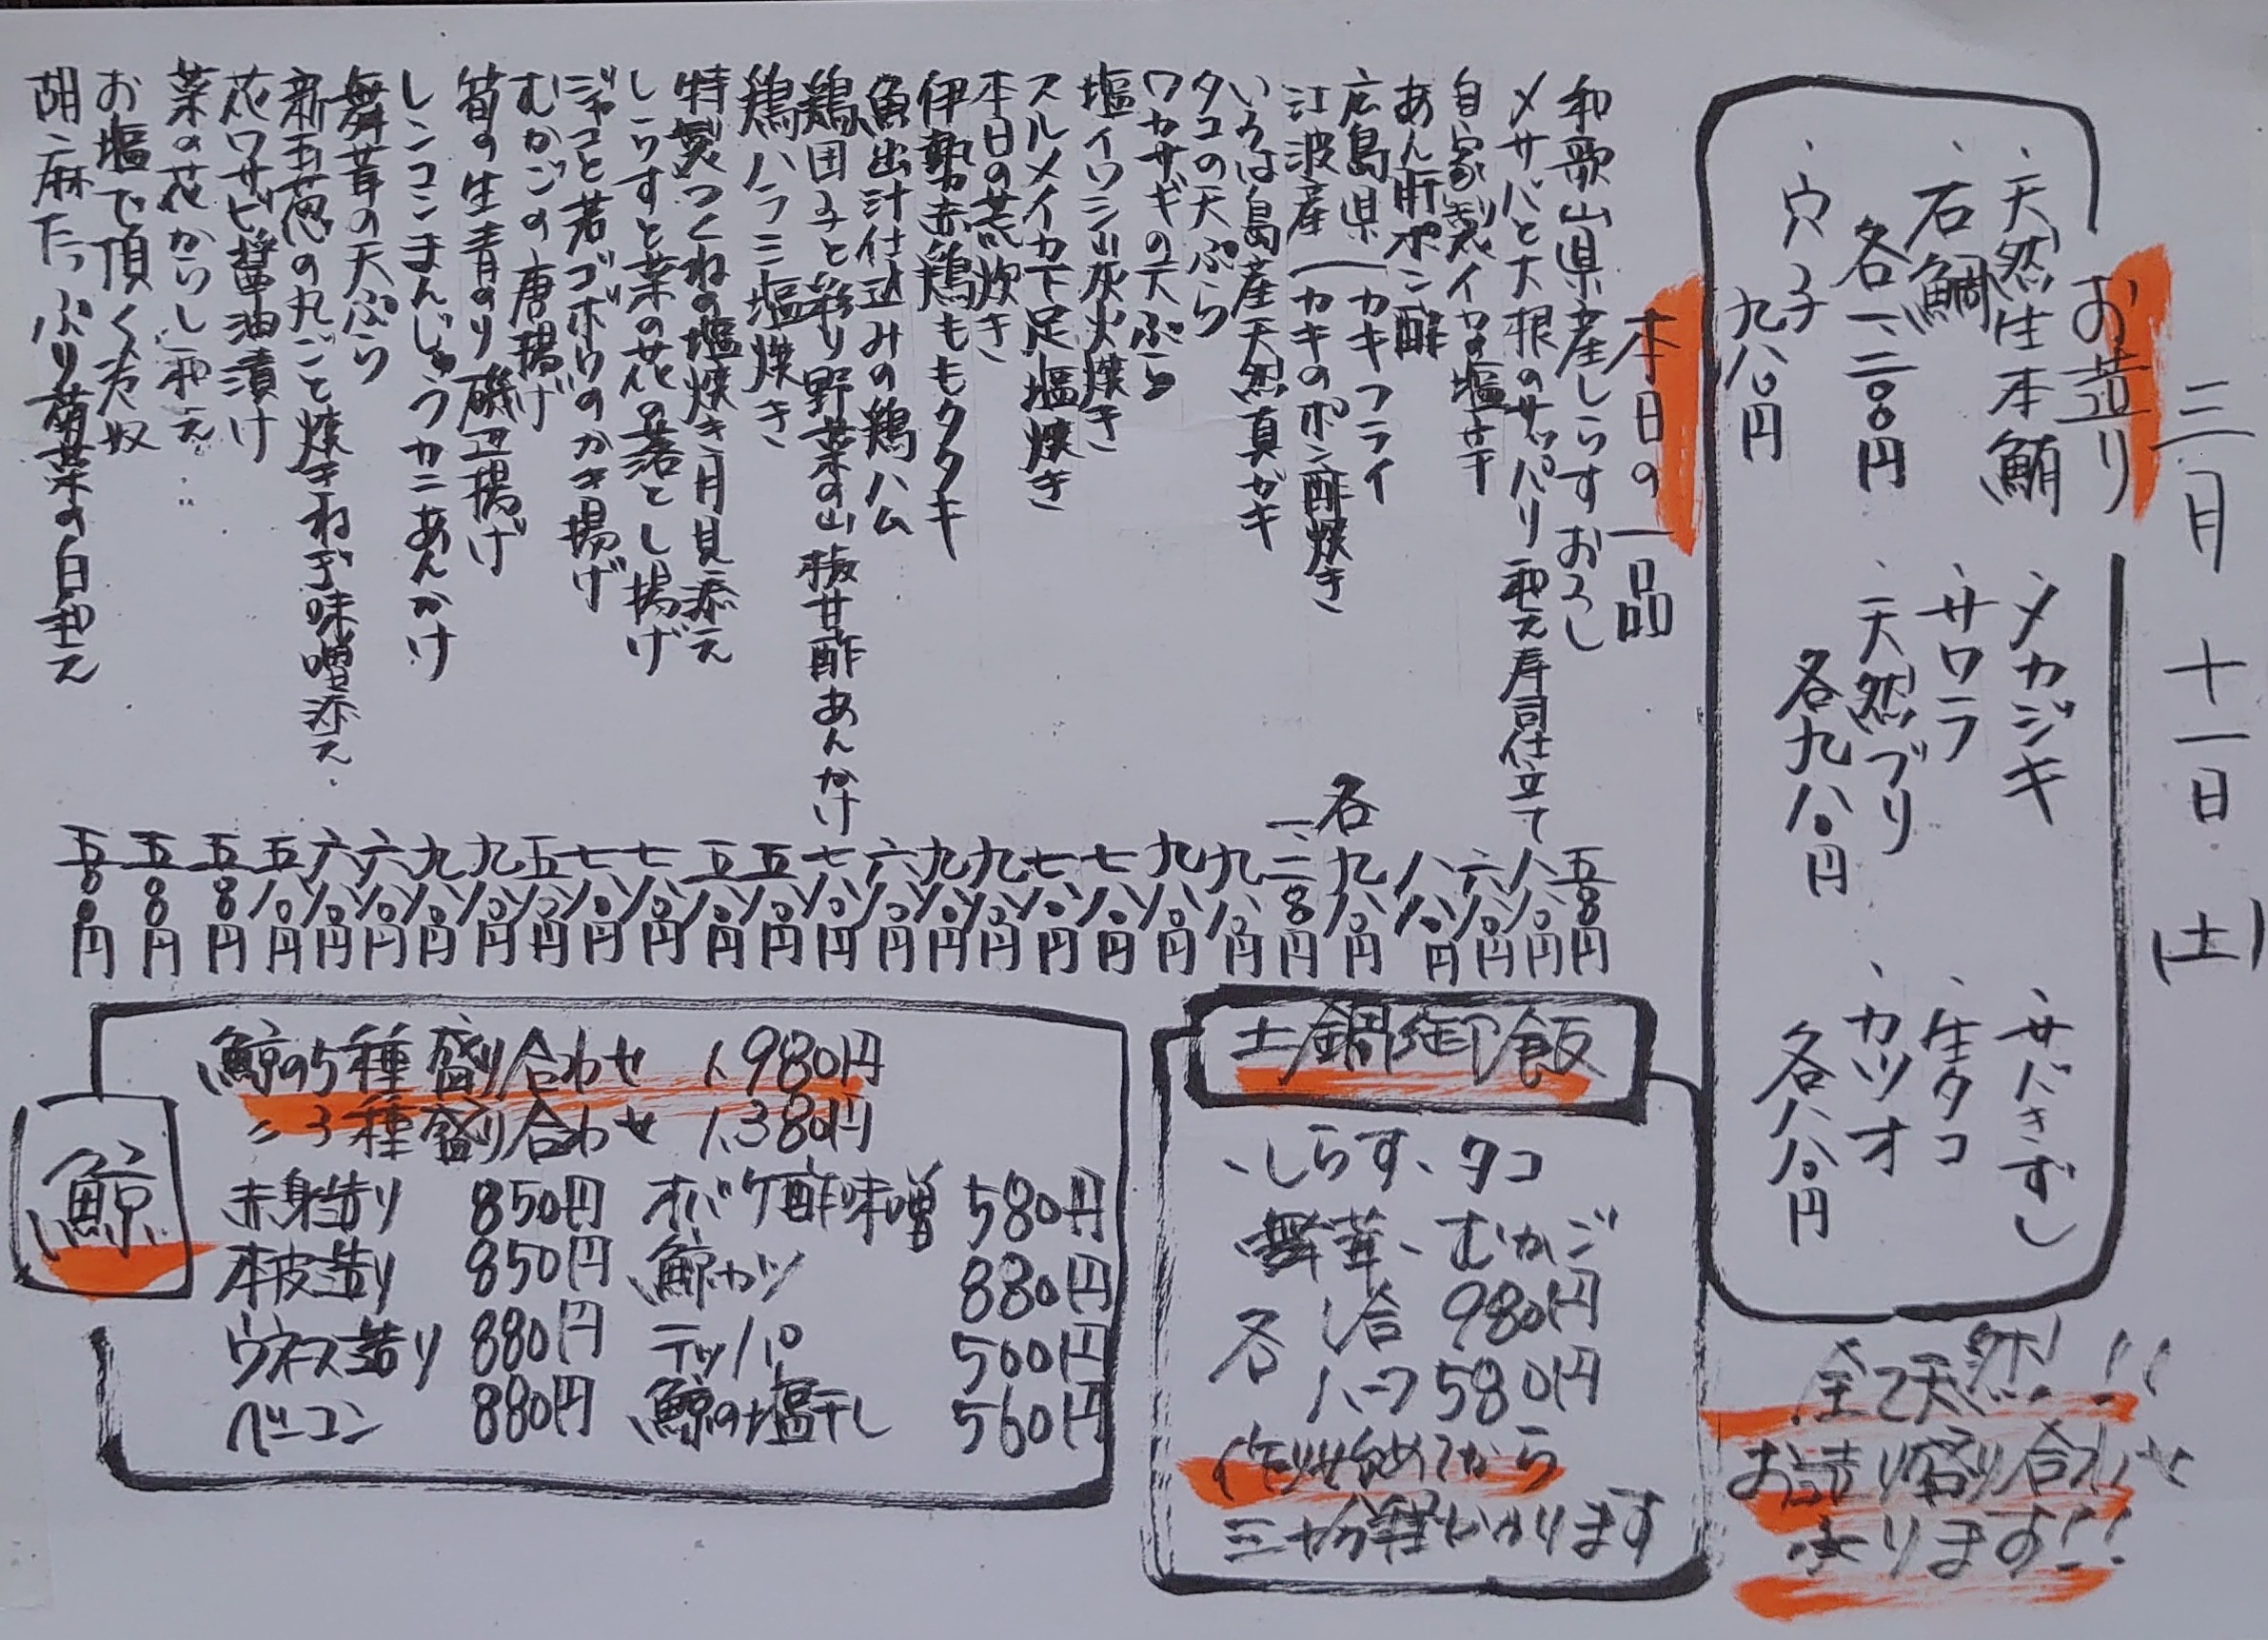 三月十一日(土)
お造り
、天然生本鮪
、石鯛
各一、二〇〇円
、穴子
九八〇円
、メカジキ
、サワラ
、天然ブリ
各九八〇円
、サバきずし
、生タコ
、カツオ
各八八〇円
全て天然!!
お造り盛り合わせ
あります!!
本日の一品
和歌山県産しらすおろし 五八〇円
〆サバと大根のサッパリ和え寿司仕立て 八八〇円
自家製イカの塩辛 六八〇円
あん肝ポン酢 八八〇円
広島県 カキフライ
江波産 カキのポン酢炊き
各九八〇円
いろは島産天然真ガキ 一、二八〇円
タコの天ぷら 九八〇円
ワカサギの天ぷら 九八〇円
塩イワシ山灰火焼き 七八〇円
スルメイカ下足塩焼き 七八〇円
本日の荒炊き 九八〇円
伊勢赤鶏ももタタキ 九八〇円
魚出汁仕込みの鶏ハム 六八〇円
鶏団子と彩り野菜の山椒甘酢あんかけ 七八〇円
鶏ハラミ塩焼き 五八〇円
特製つくねの塩焼き月見添え 五八〇円
しらすと菜の花の落とし揚げ 七八〇円
ジャコと若ゴボウのかき揚げ 七八〇円
むかごの唐揚げ 五八〇円
筍の生青のり磯辺揚げ 九八〇円
レンコンまんじゅうカニあんかけ 九八〇円
舞茸の天ぷら 六八〇円
新玉葱の丸ごと焼きねぎ味噌添え 六八〇円
花ワサビ醤油漬け 五八〇円
菜の花からし和え 五八〇円
お塩で頂く冷奴 五八〇円
胡麻たっぷり菊菜の白和え 五八〇円
土鍋御飯
、しらす、タコ
、舞茸、むかご
各 1合 980円
ハーフ 580円
作り始めてから
三十分程かかります
鯨
鯨の5種盛り合わせ 1,980円
〃3種盛り合わせ 1,380円
赤身造り 850円
本皮造り 850円
ウネス造り 880円
ベーコン 880円
オバケ酢味噌 580円
鯨カツ 880円
テッパ 500円
鯨の塩干し 560円